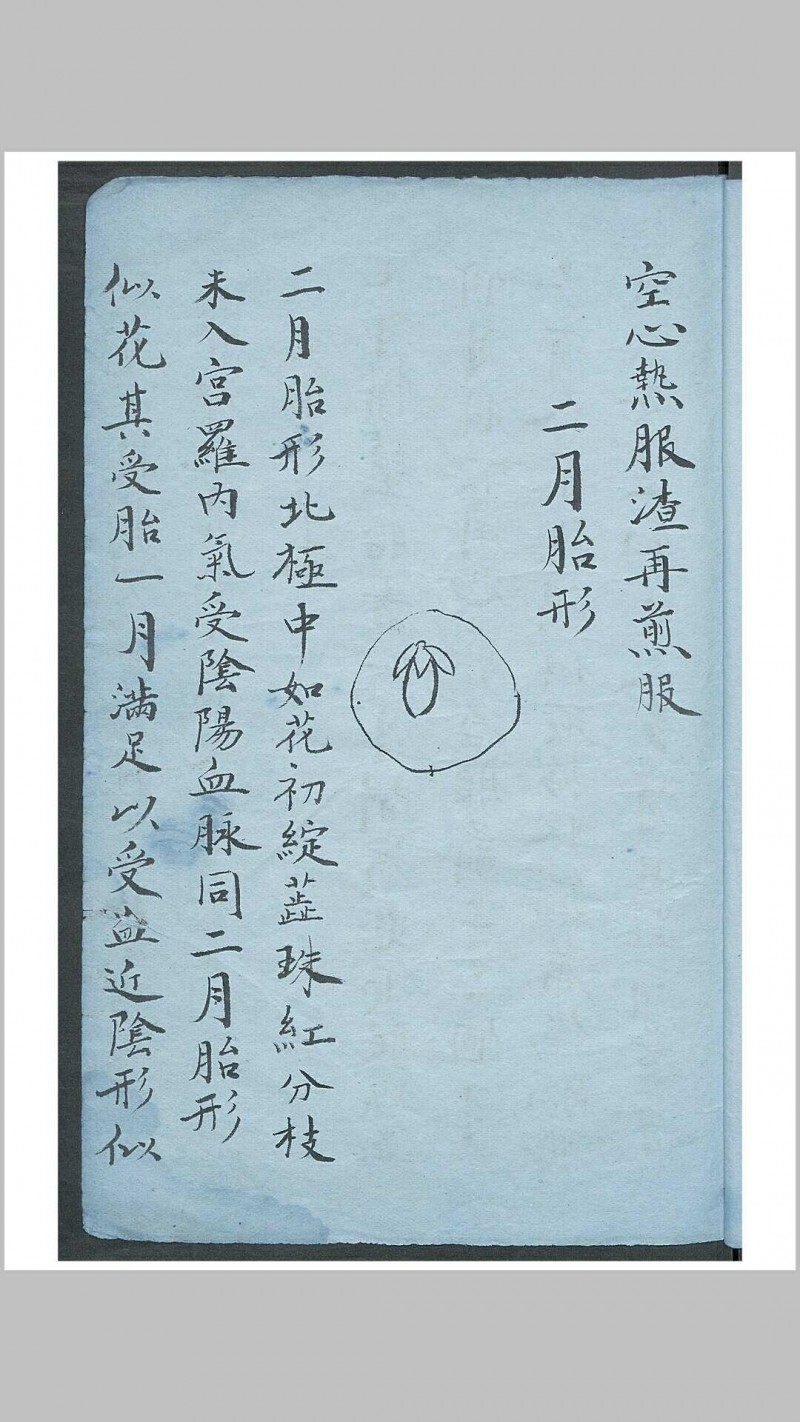 空心热服渣再煎服
二月胎形
二月胎形北極中如花初綻蕋珠紅分枝
未入宮羅內氣受陰陽血脉同二月胎形
似花其受胎一月滿足以受血近陰形似